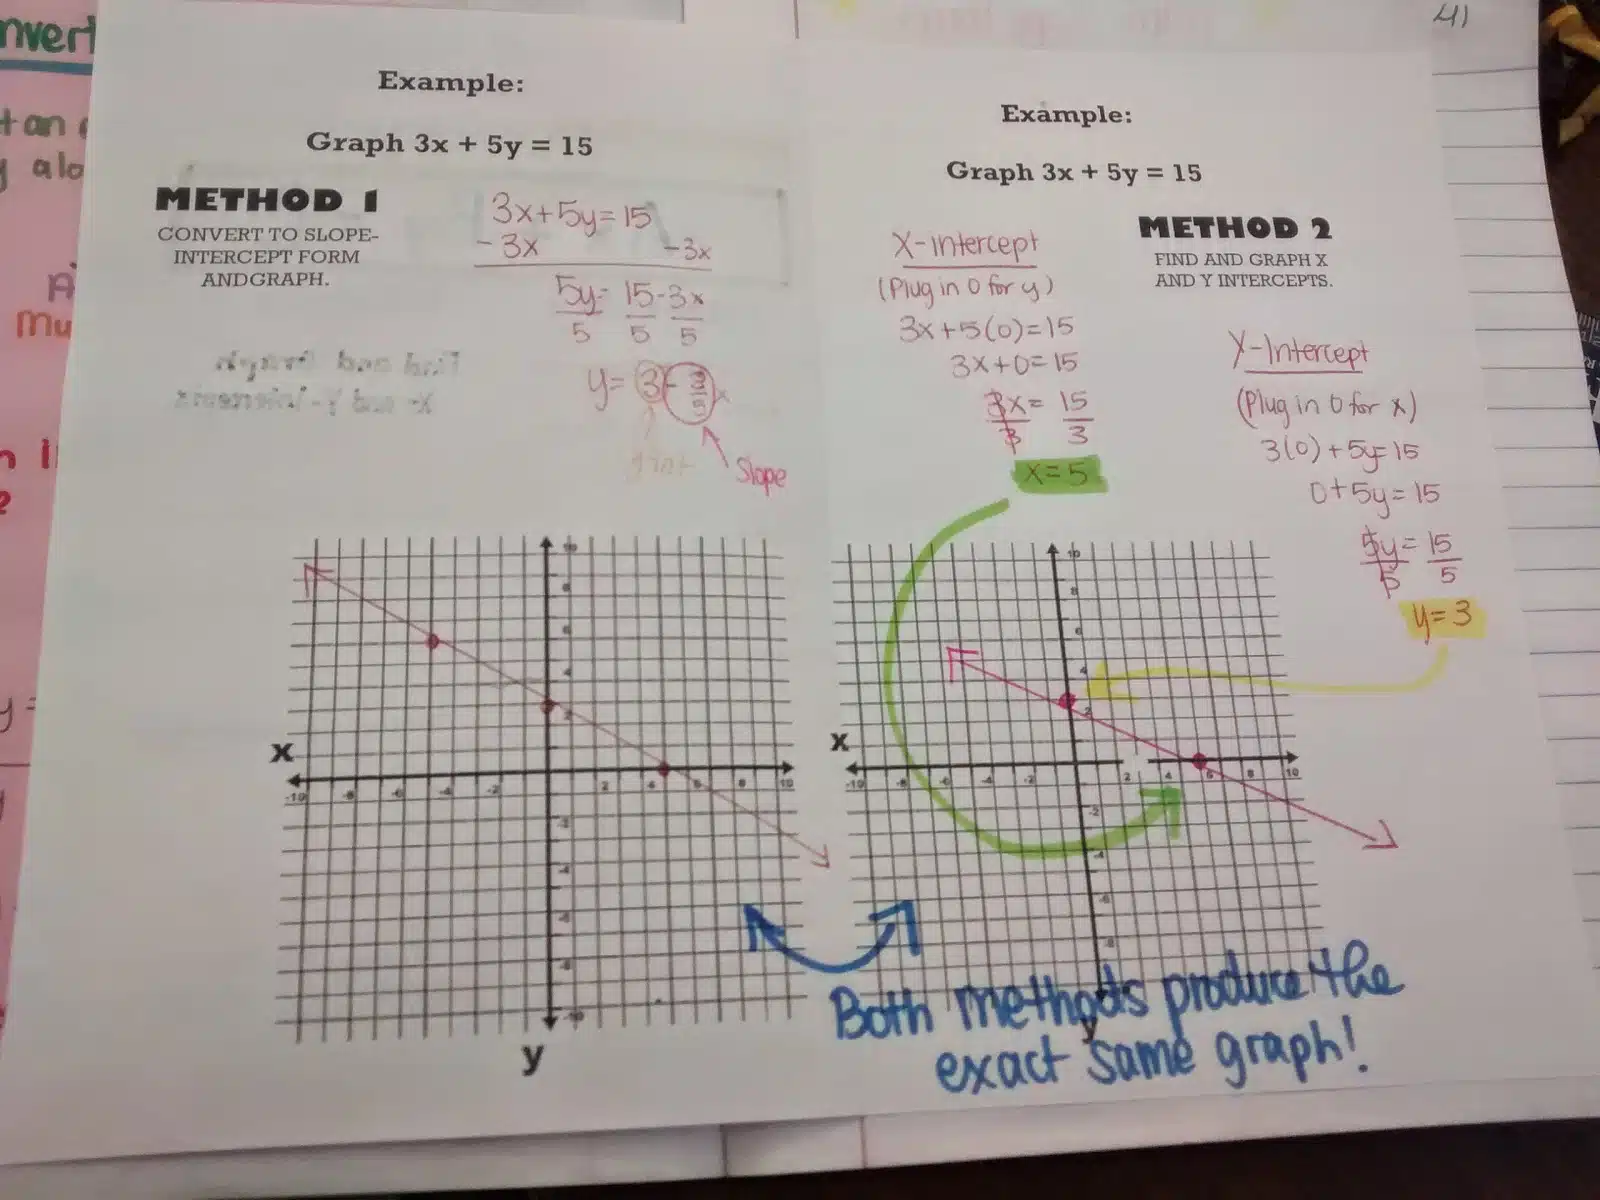 41
nvert
Example:
Graph 3x + 5y = 15
METHOD 1
CONVERT TO SLOPE-
INTERCEPT FORM
ANDGRAPH.
3x+5y=15
-3x -3x
5y= 15-3x
5 5 5
y= 3 - 3/5 x
Slope
Find and Graph
X- and Y-Intercepts
10
8
6
4
2
x
-10 -8 -6 -4 -2 2 4 6 8 10
-2
-4
-6
-8
-10
y
Example:
Graph 3x + 5y = 15
METHOD 2
FIND AND GRAPH X
AND Y INTERCEPTS.
X-intercept
(Plug in 0 for y)
3x+5(0)=15
3x+0=15
3x= 15
3 3
x=5
Y-Intercept
(Plug in 0 for x)
3(0)+5y=15
0+5y=15
5y= 15
5 5
y=3
10
8
6
4
2
x
-10 -8 -6 -4 -2 2 4 6 8 10
-2
-4
-6
-8
y
Both methods produce the
exact same graph!